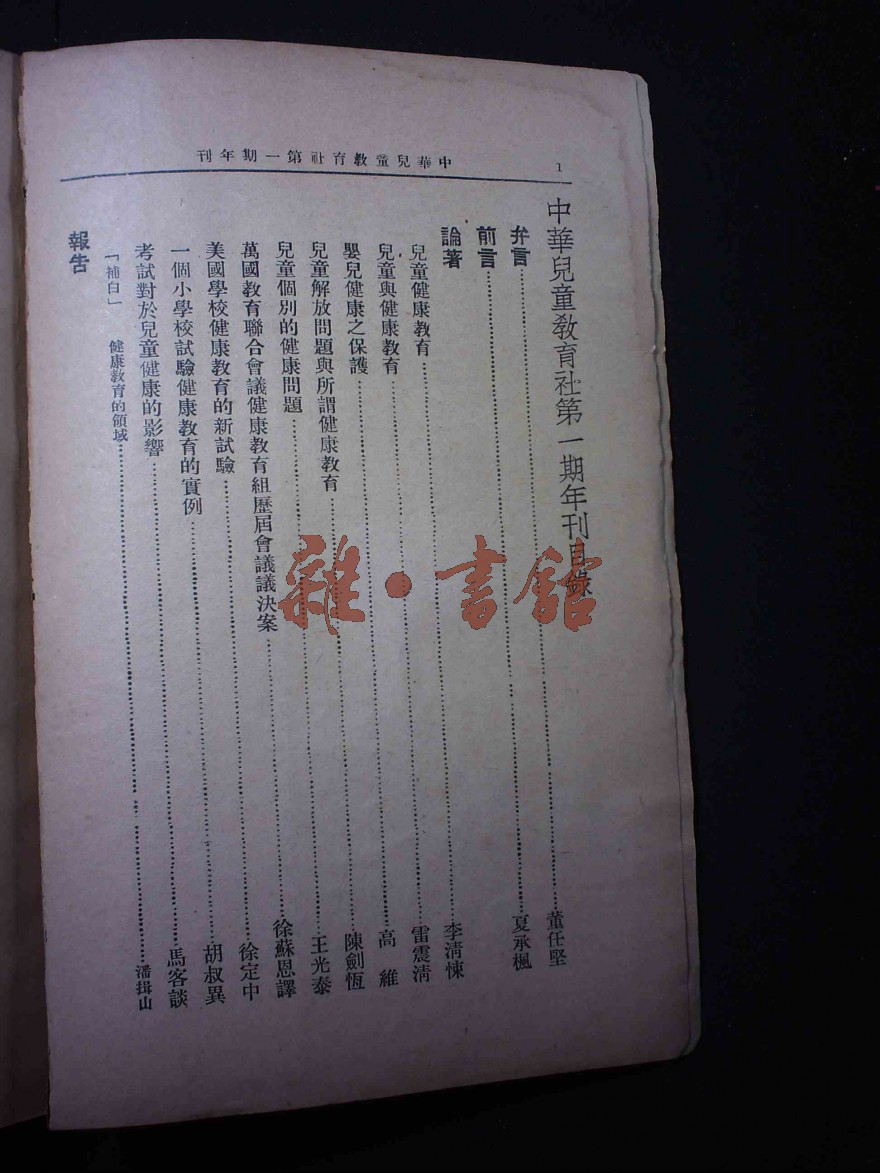 1
中華兒童教育社第一期年刊
中華兒童教育社第一期年刊目錄
弁言……董任堅
前言……夏承楓
論著
兒童健康教育……李清悚
兒童與健康教育……雷震清
嬰兒健康之保護……高維
兒童解放問題與所謂健康教育……陳劍恆
兒童個別的健康問題……王光泰
萬國教育聯合會議健康教育組歷屆會議議決案……徐蘇恩譯
美國學校健康教育的新試驗……徐定中
一個小學校試驗健康教育的實例……胡叔異
考試對於兒童健康的影響……馬客談
「補白」 健康教育的領域……潘揖山
報告
雜·書館